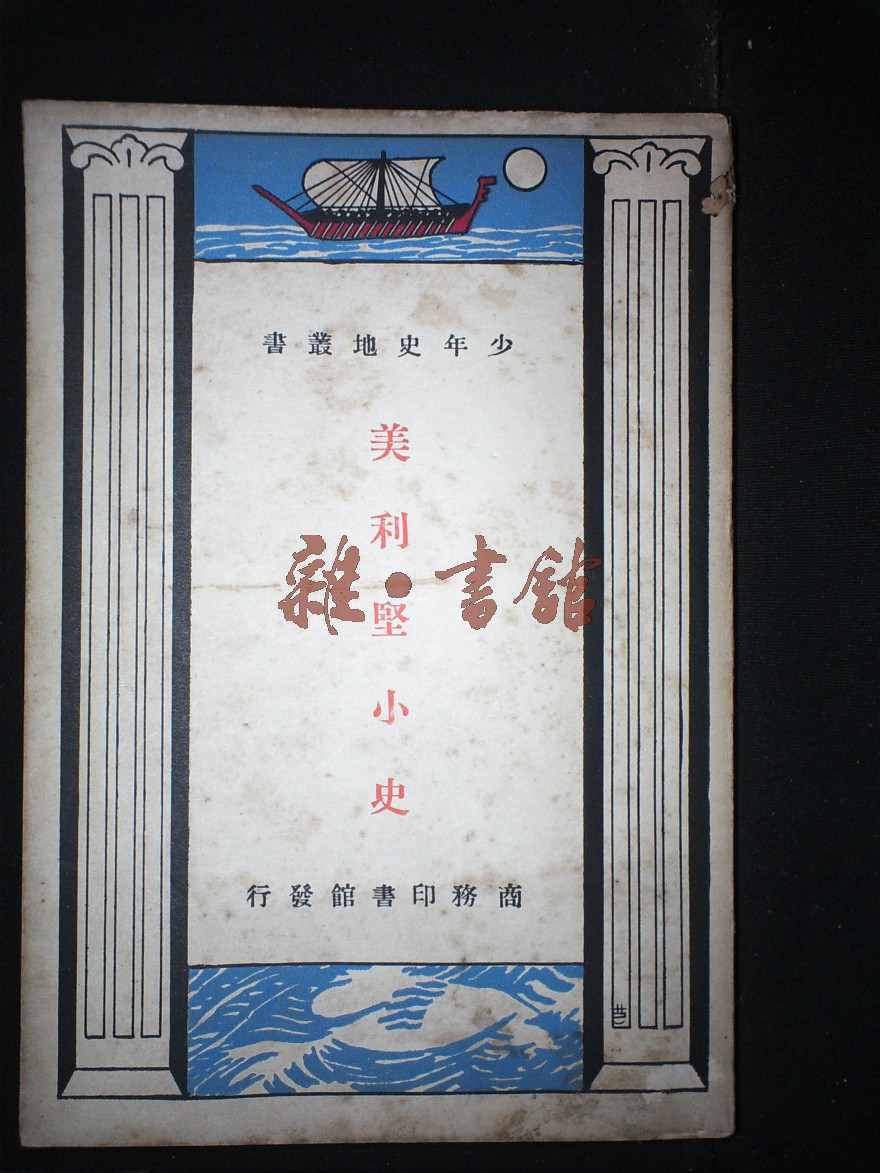 少年史地叢書
美利堅小史
雜·書館
商務印書館發行